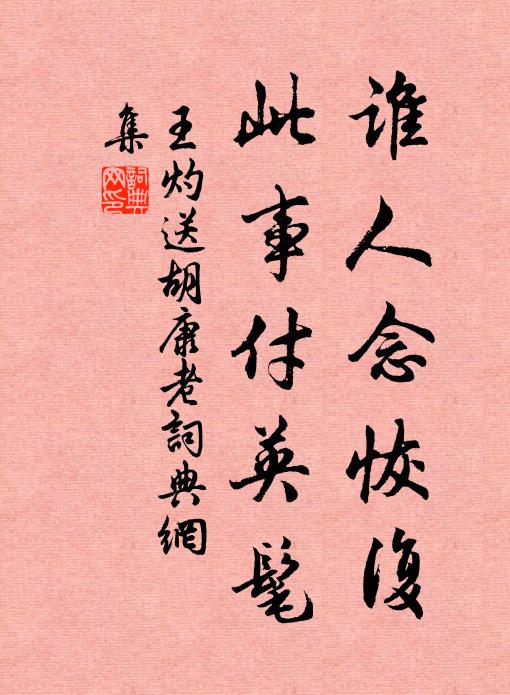 誰人念恢復
此事付英髦
王灼送胡康老詞典網
集
詞典
网印